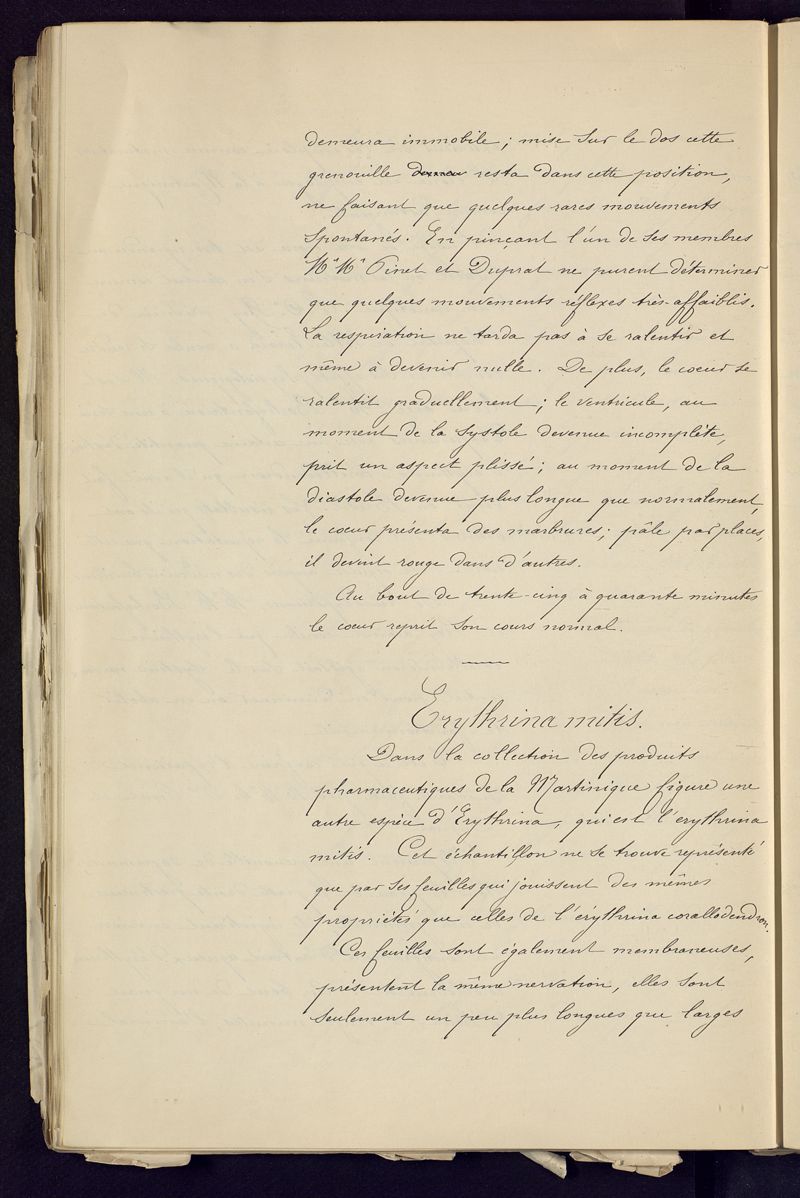 demeura immobile ; mise sur le dos cette
grenouille resta dans cette position,
ne faisant que quelques rares mouvements
spontanés. En pinçant l'un de ses membres
Mrs Mrs Pinet et Duprat ne purent déterminer
que quelques mouvements réflexes très-affaiblis.
La respiration ne tarda pas à se ralentir et
même à devenir nulle. De plus, le coeur se
ralentit graduellement ; le ventricule, au
moment de la systole devenue incomplète,
prit un aspect plissé ; au moment de la
diastole devenue plus longue que normalement,
le coeur présenta des marbrures ; pâle par places,
il devint rouge dans d'autres.
Au bout de trente-cinq à quarante minutes
le coeur reprit son cours normal.
Erythrina mitis.
Dans la collection des produits
pharmaceutiques de la Martinique figure une
autre espèce d'Erythrina, qui est l'erythrina
mitis. Cet échantillon ne se trouve représenté
que par ses feuilles qui jouissent des mêmes
propriétés que celles de l'érythrina corallodendron.
Ces feuilles sont également membraneuses,
présentent la même nervation, elles sont
seulement un peu plus longues que larges